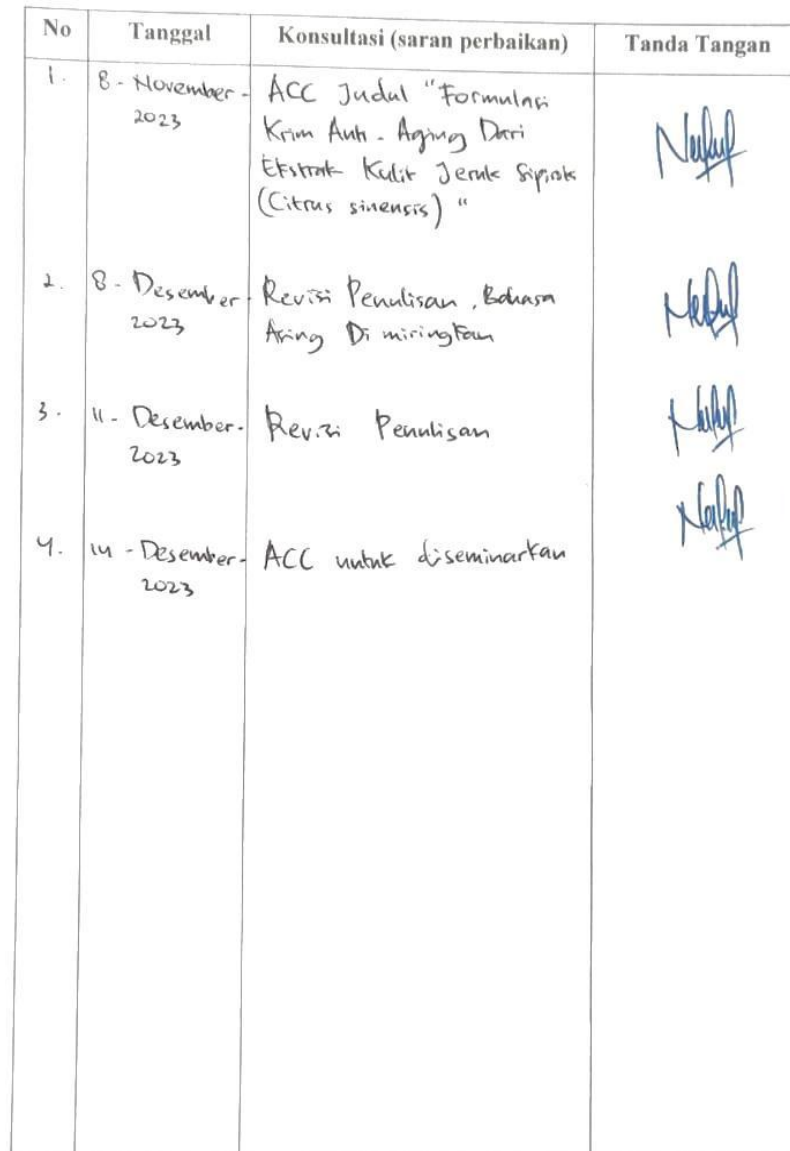 No Tanggal Konsultasi (saran perbaikan) Tanda Tangan
1. 8 - November - ACC Judul "Formulasi
2023 Krim Anti - Aging Dari
Ekstrak Kulit Jeruk Sipirok
(Citrus sinensis) "
2. 8 - Desember - Revisi Penulisan, Bahasa
2023 Asing Di miringkan
3. 11 - Desember - Revisi Penulisan
2023
4. 14 - Desember - ACC untuk diseminarkan
2023